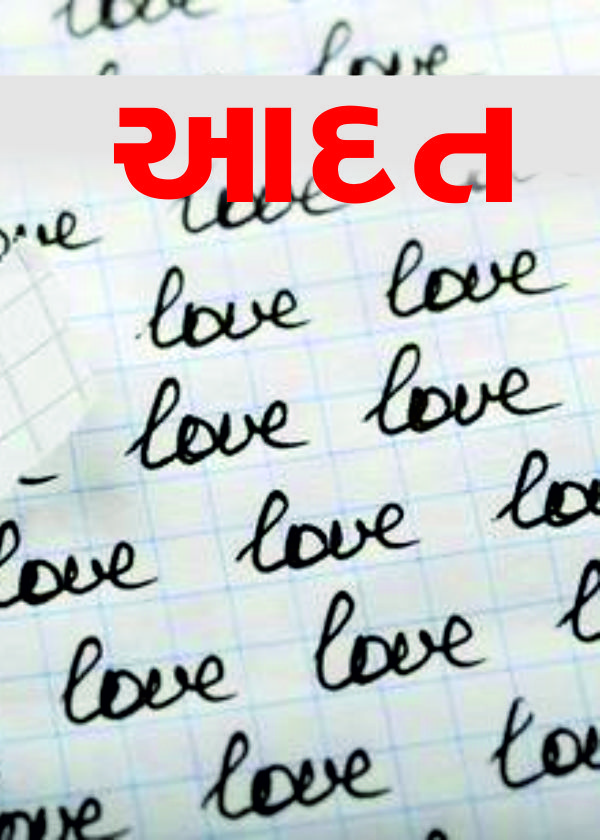 love
love
આદત
love
love love
love love
love love
love love
love